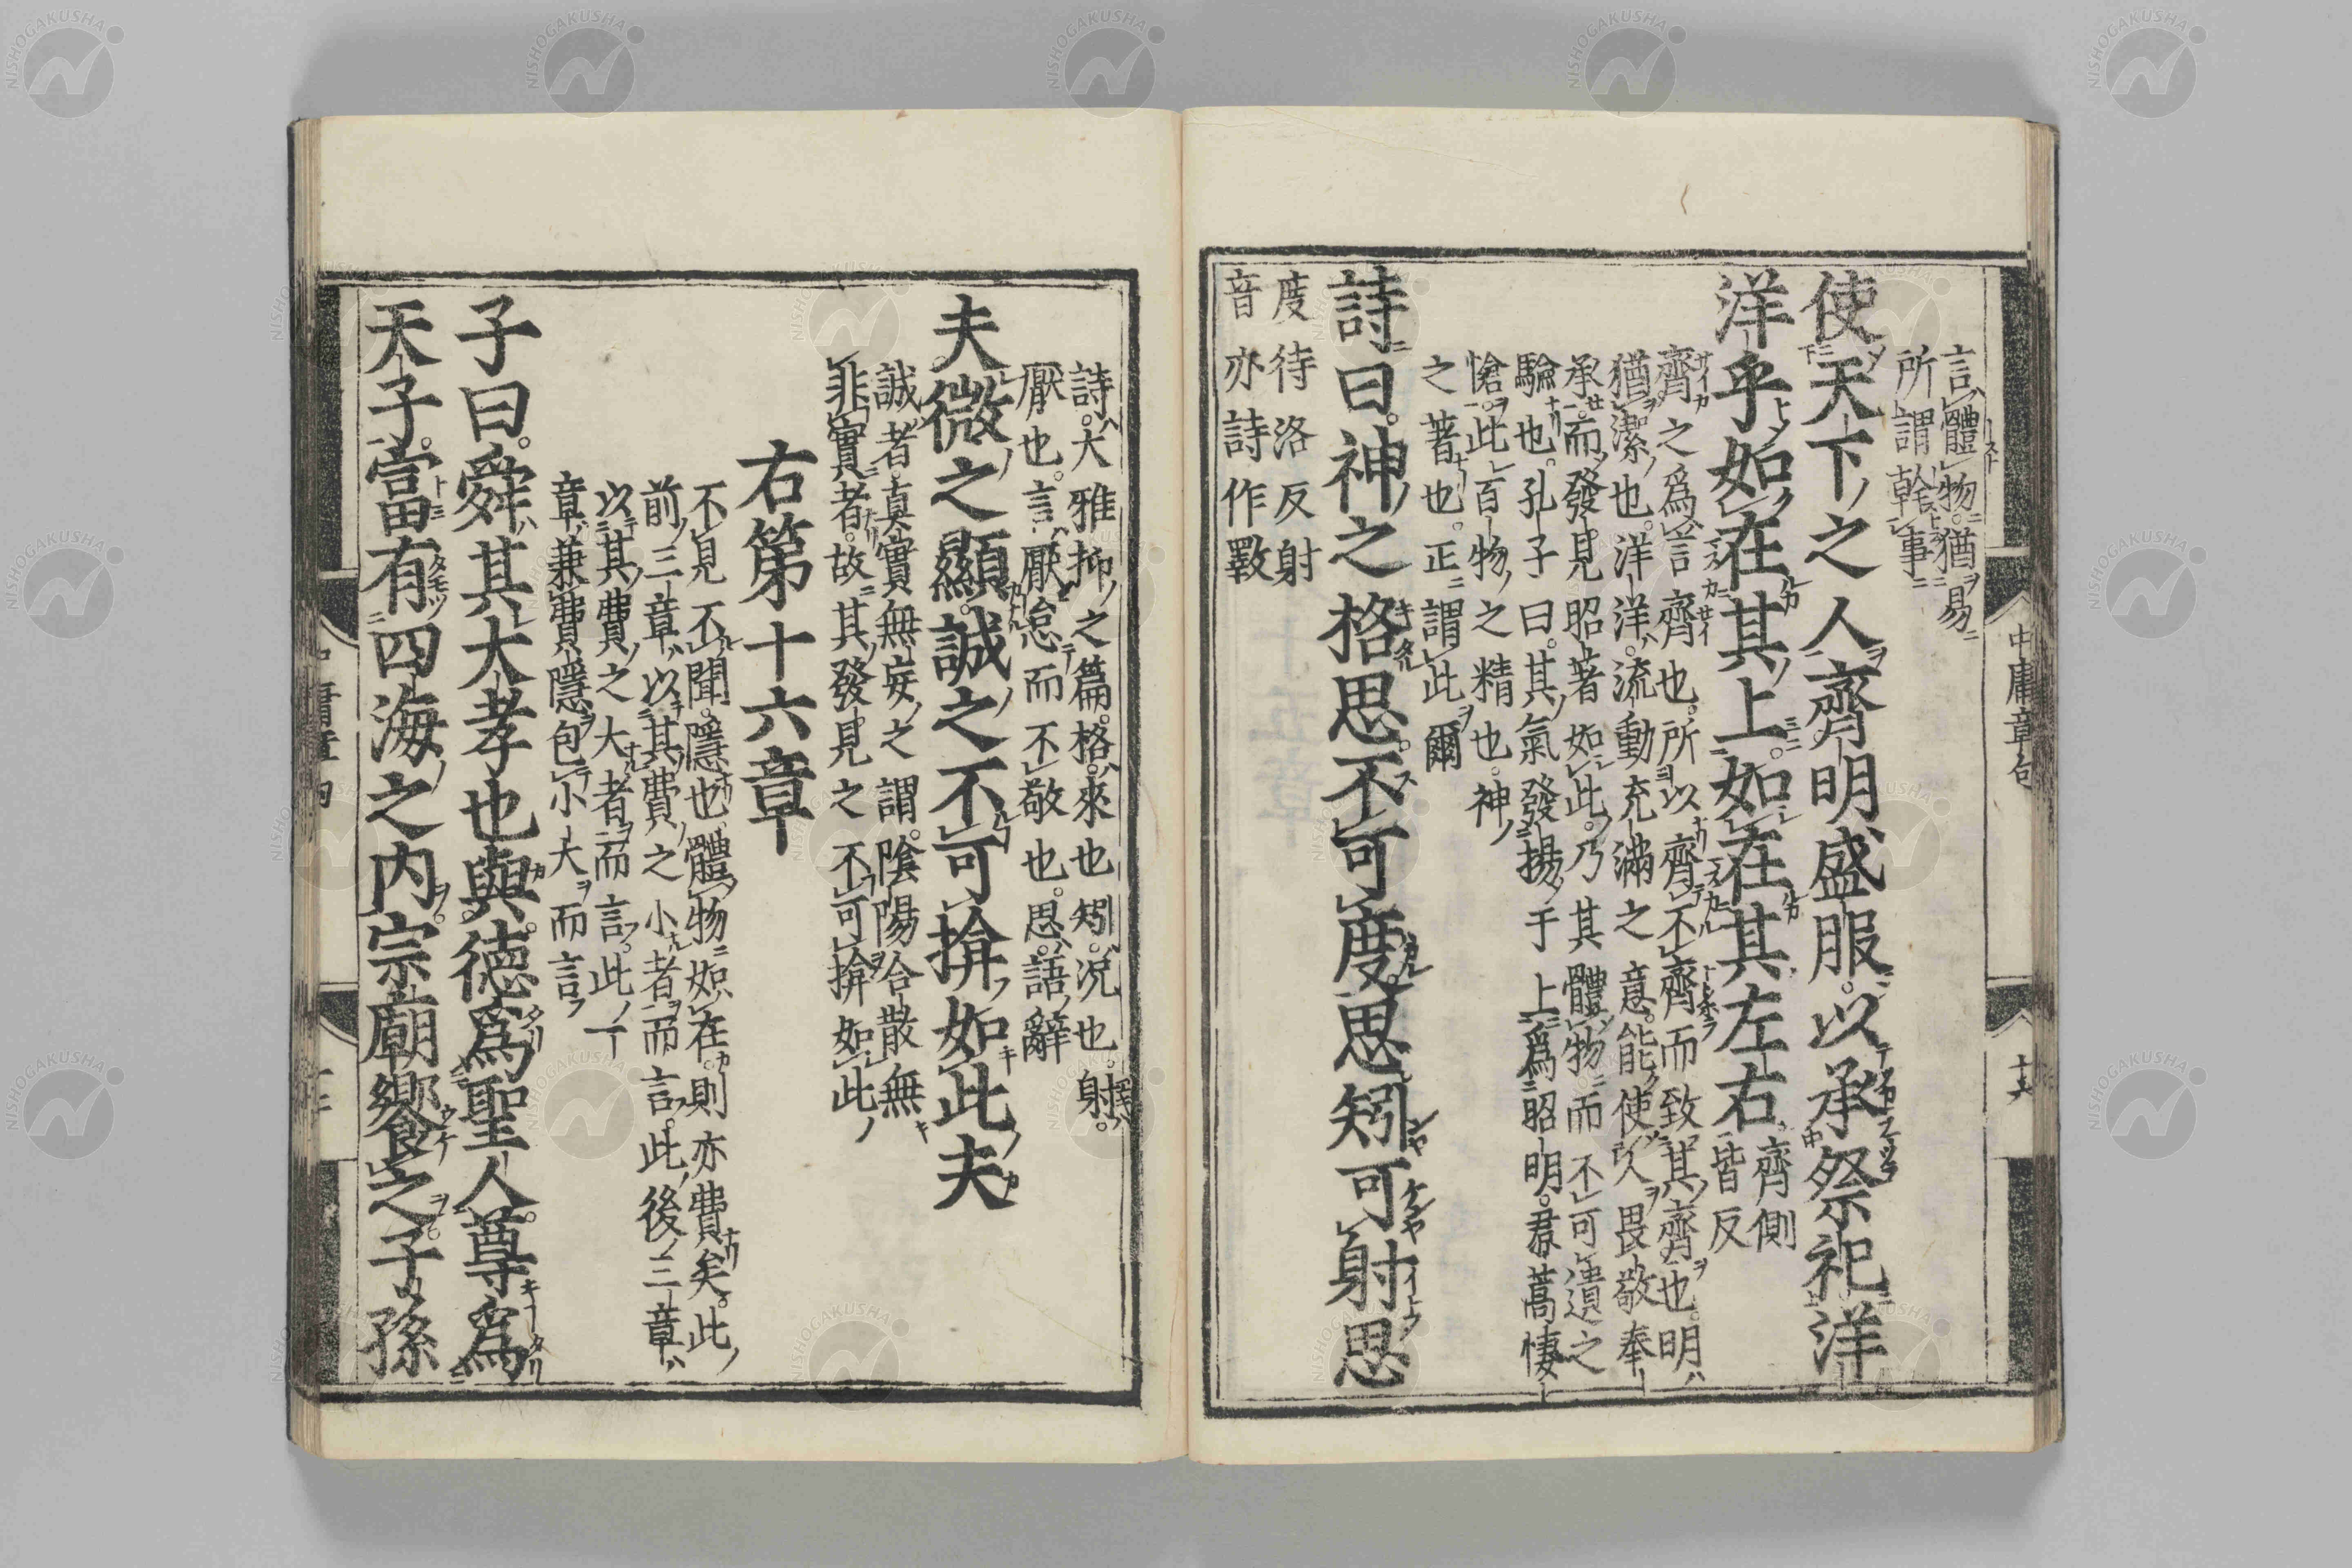 言體物猶易
所謂幹事
使天下之人齊明盛服以承祭祀洋
洋乎如在其上如在其左右 齊側
皆反
齊之爲言齊也所以齊不齊而致其齊也明
猶潔也洋洋流動充滿之意能使人畏敬奉
承而發見昭著如此乃其體物而不可遺之
驗也孔子曰其氣發揚于上爲昭明焄蒿悽
愴此百物之精也神
之著也正謂此爾
詩曰神之格思不可度思矧可射思
度待洛反射
音亦詩作斁
詩大雅抑之篇格來也矧況也射
厭也言厭怠而不敬也思語辭
夫微之顯誠之不可揜如此夫
誠者真實無妄之謂陰陽合散無
非實者故其發見之不可揜如此
右第十六章
不見不聞隱也體物如在則亦費矣此
前三章以其費之小者而言此後三章
以其費之大者而言此一
章兼費隱包小大而言
子曰舜其大孝也與德爲聖人尊爲
天子富有四海之内宗廟饗之子孫
中庸章句
NISHOGAKUSHA